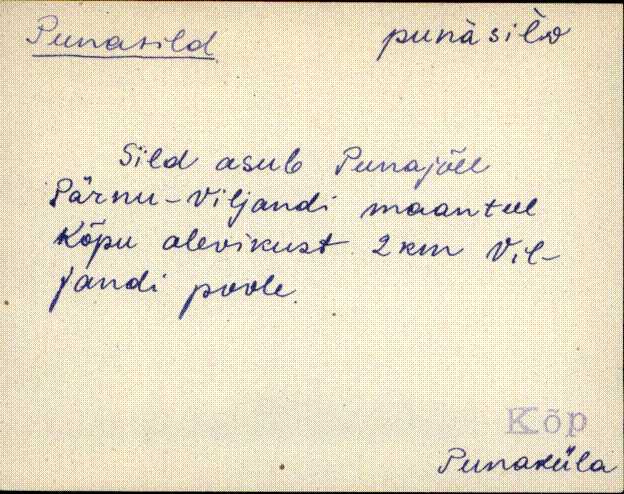 Punasild
punàsilᴅ
Sild asub Punajõel
Pärnu-Viljandi maanteel
Kõpu alevikust 2 km Vil-
jandi poole.
Kõp
Punaküla